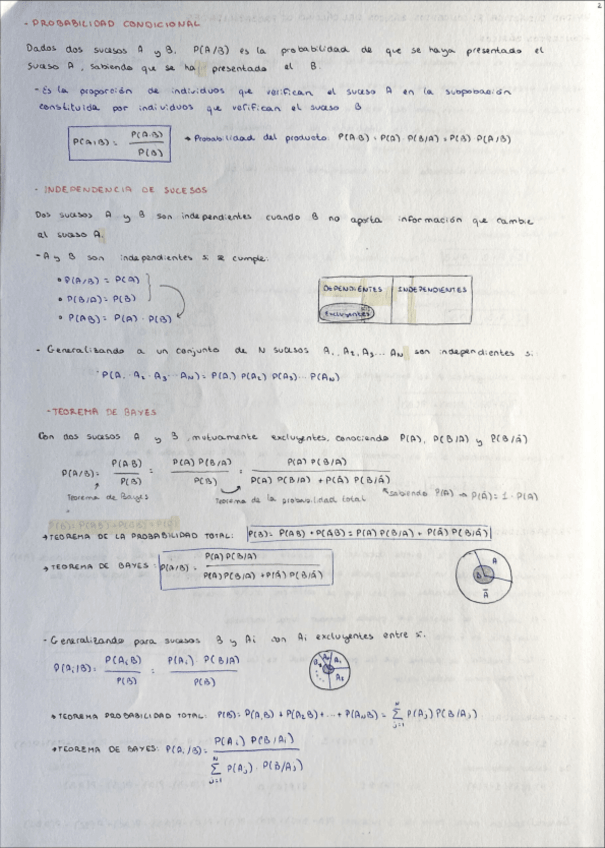 2
- PROBABILIDAD CONDICIONAL
Dados dos sucesos A y B, P(A/B) es la probabilidad de que se haya presentado el
suceso A, sabiendo que se ha presentado el B.
- Es la proporción de individuos que verifican el suceso A en la supobación
constituida por individuos que verifican el suceso B
P(A/B) = P(A·B) / P(B) → Probabilidad del producto: P(AB) = P(A) · P(B/A) = P(B) P(A/B)
- INDEPENDENCIA DE SUCESOS
Dos sucesos A y B son independientes cuando B no aporta información que cambie
el suceso A.
- A y B son independientes si se cumple:
• P(A/B) = P(A)
• P(B/A) = P(B)
• P(AB) = P(A) · P(B)
DEPENDIENTES INDEPENDIENTES
Excluyentes
- Generalizando a un conjunto de N sucesos A₁, A₂, A₃ ... AN son independientes si:
P(A₁ · A₂ · A₃ ... AN) = P(A₁) P(A₂) P(A₃) ... P(AN)
- TEOREMA DE BAYES
Con dos sucesos A y B, mutuamente excluyentes, conociendo P(A), P(B/A) y P(B/Ā)
P(A/B) = P(AB) / P(B) = P(A) P(B/A) / P(B) = P(A) P(B/A) / P(A) P(B/A) + P(Ā) P(B/Ā)
Teorema de Bayes Teorema de la probabilidad total sabiendo P(A) → P(Ā) = 1 - P(A)
→ TEOREMA DE LA PROBABILIDAD TOTAL: P(B) = P(AB) + P(ĀB) = P(A) P(B/A) + P(Ā) P(B/Ā)
→ TEOREMA DE BAYES: P(A/B) = P(A) P(B/A) / P(A) P(B/A) + P(Ā) P(B/Ā)
A
B
Ā
- Generalizando para sucesos B y Ai con Ai excluyentes entre sí:
P(Ai/B) = P(AiB) / P(B) = P(Ai) P(B/A) / P(B)
A₁
A₂
→ TEOREMA PROBABILIDAD TOTAL: P(B) = P(A₁B) + P(A₂B) + ... + P(ANB) = Σ N j=1 P(Aj) P(B/Aj)
→ TEOREMA DE BAYES: P(Ai/B) = P(Ai) P(B/Ai) / Σ N j=1 P(Aj) · P(B/Aj)